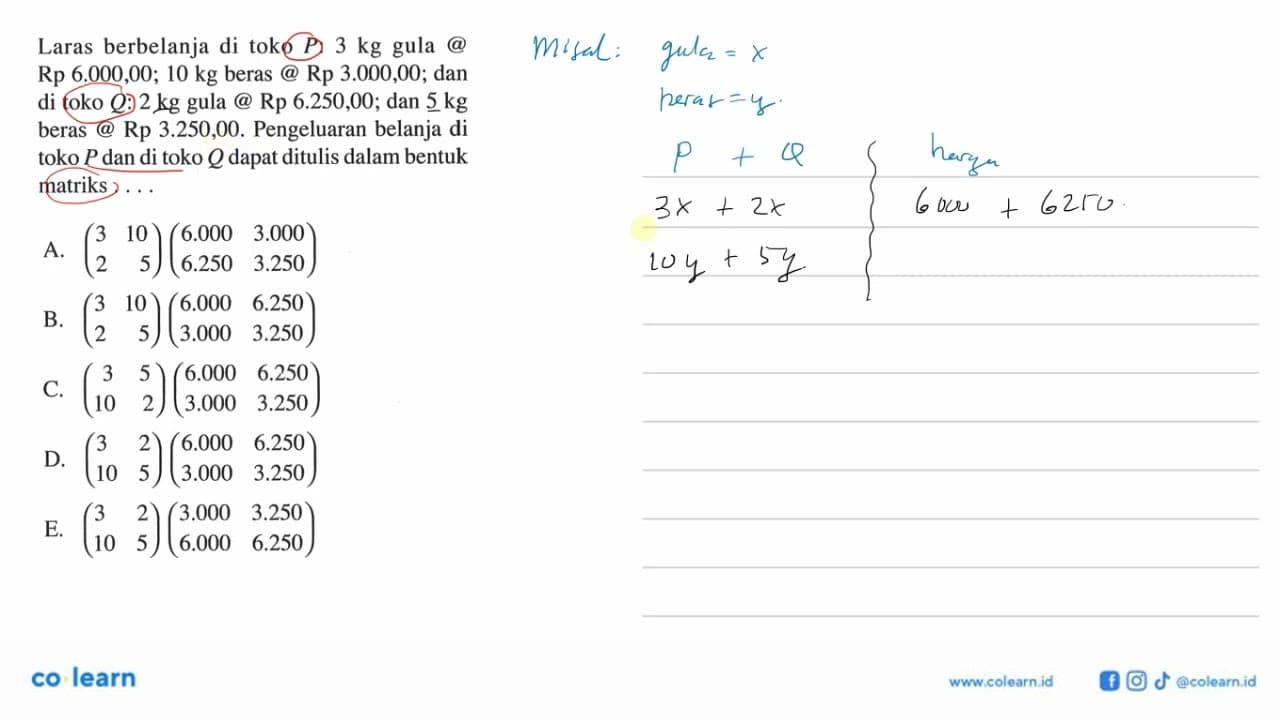 Laras berbelanja di toko P: 3 kg gula @
Rp 6.000,00; 10 kg beras @ Rp 3.000,00; dan
di toko Q: 2 kg gula @ Rp 6.250,00; dan 5 kg
beras @ Rp 3.250,00. Pengeluaran belanja di
toko P dan di toko Q dapat ditulis dalam bentuk
matriks . . . .
A. (3 10) (6.000 3.000)
(2 5) (6.250 3.250)
B. (3 10) (6.000 6.250)
(2 5) (3.000 3.250)
C. (3 5) (6.000 6.250)
(10 2) (3.000 3.250)
D. (3 2) (6.000 6.250)
(10 5) (3.000 3.250)
E. (3 2) (3.000 3.250)
(10 5) (6.000 6.250)
Misal: gula = x
beras = y.
P + Q harga
3x + 2x 6000 + 6250.
10y + 5y
co learn
www.colearn.id @colearn.id